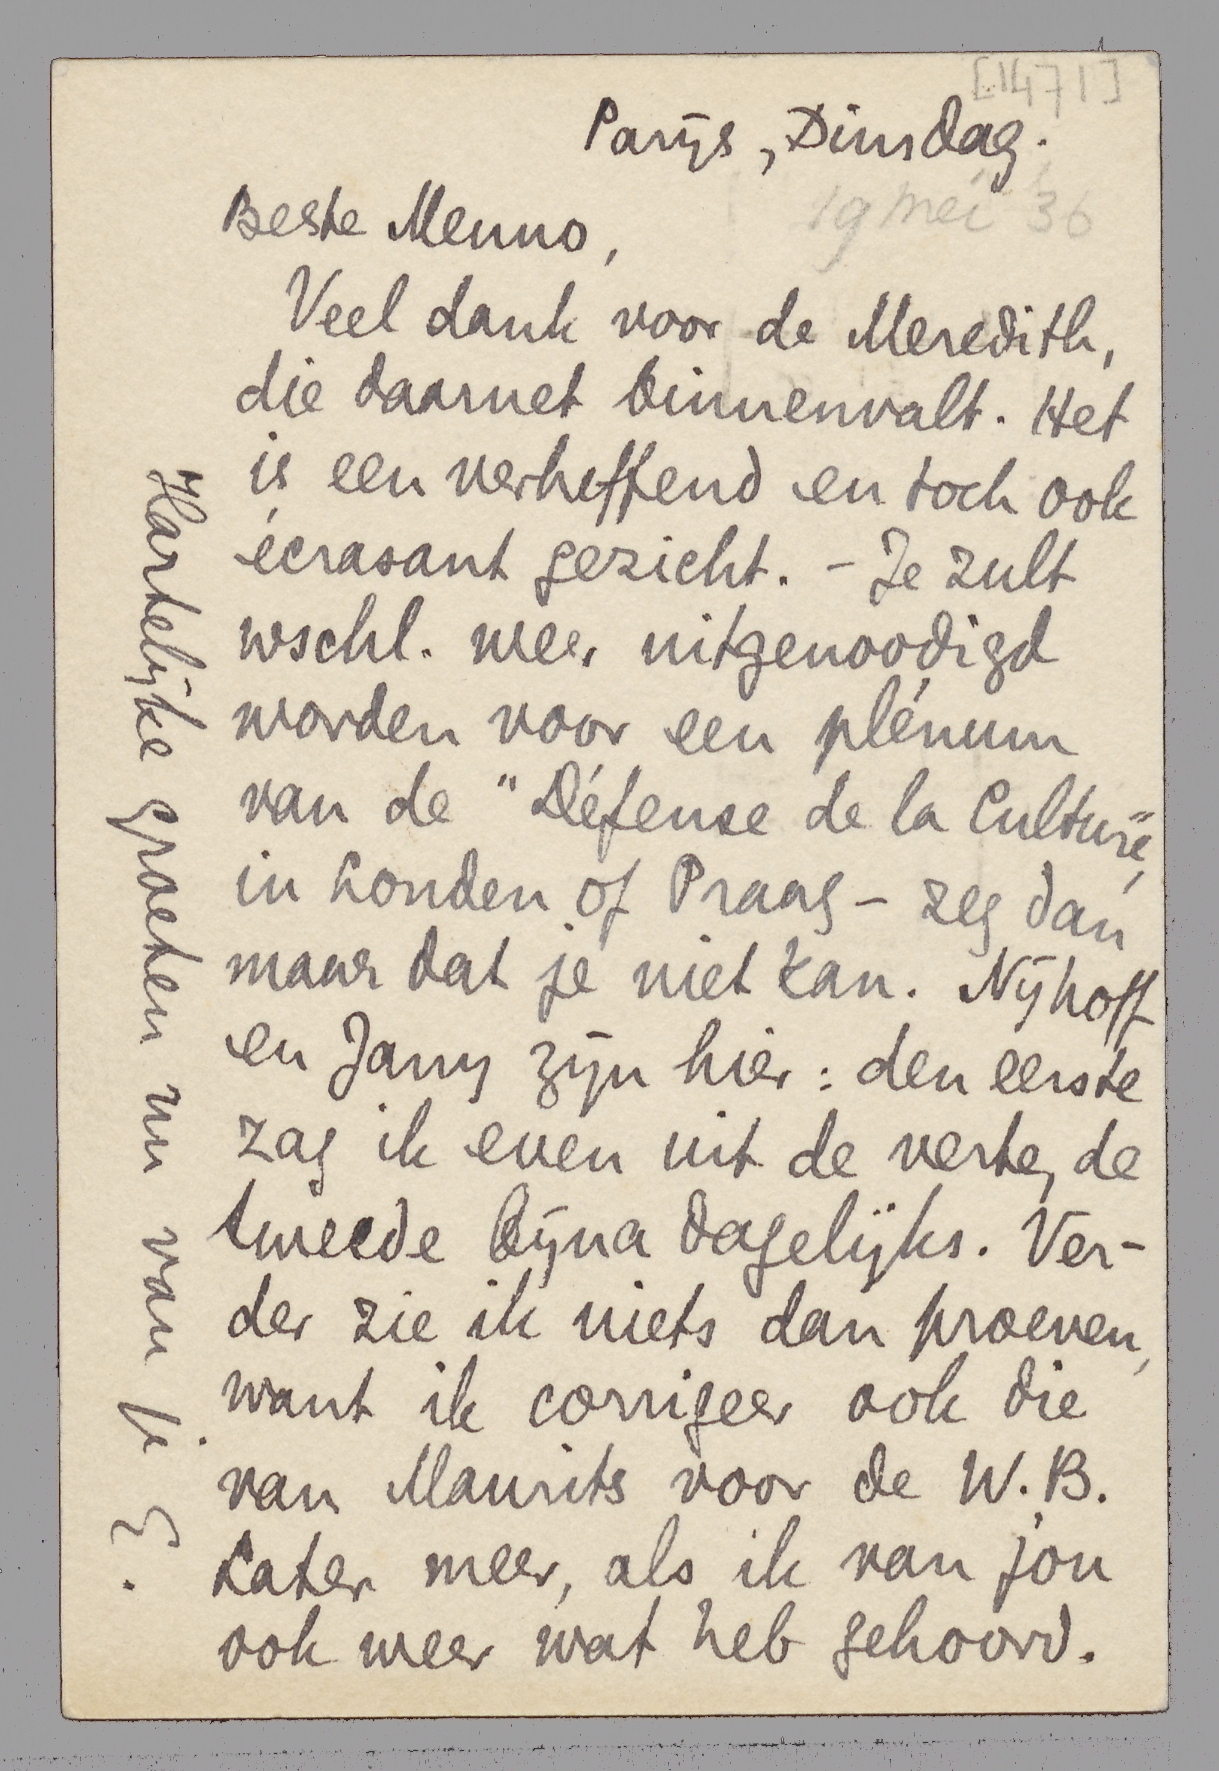 [1471]
Parijs, Dinsdag.
19 mei 36
Beste Menno,
Veel dank voor de Meredith,
die daarnet binnenvalt. Het
is een verheffend en toch ook
écrasant gezicht. - Je zult
wschl. weer uitgenoodigd
worden voor een plénum
van de "Défense de la Culture",
in Londen of Praag - zeg dan
maar dat je niet kan. Nijhoff
en Jany zijn hier: den eerste
zag ik even uit de verte, de
tweede bijna dagelijks. Ver-
der zie ik niets dan proeven,
want ik corrigeer ook die
van Maurits voor de W.B.
Later meer, als ik van jou
ook weer wat heb gehoord.
Hartelijke groeten nu van je E.